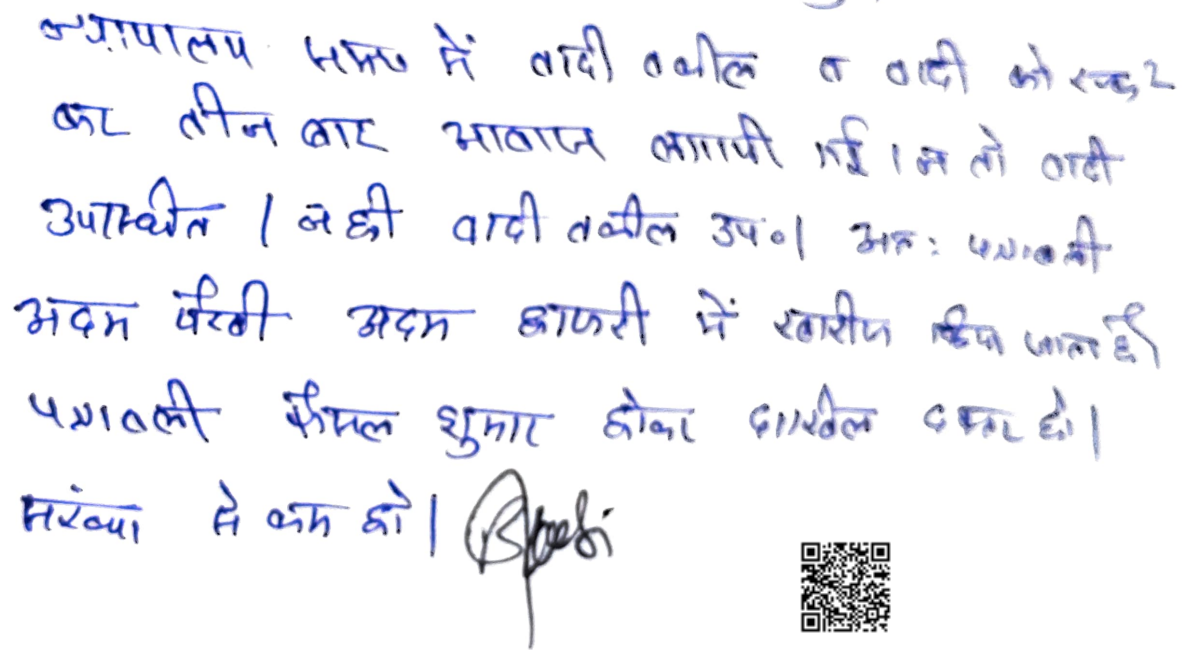 न्यायालय समय में वादी वकील व वादी को रूक 2
कर तीन बार आवाज लगायी गई । न तो वादी
उपस्थित । न ही वादी वकील उप० । अतः पत्रावली
अदम पैरवी अदम हाजरी में खारीज किया जाता है।
पत्रावली फैसल शुमार होकर दाखील दफ्तर हो ।
संख्या से कम हो ।